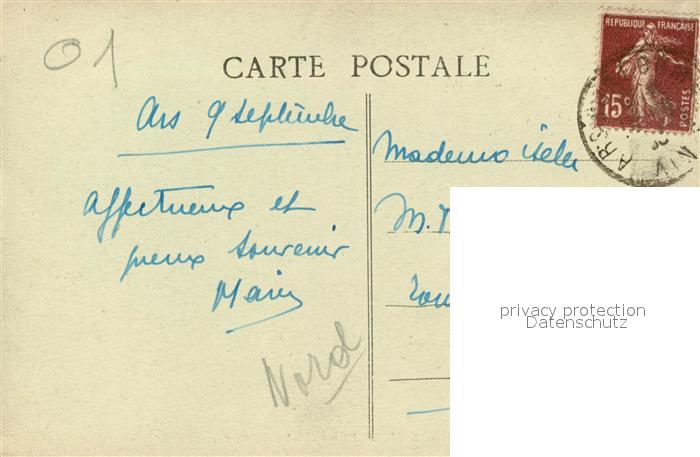 01
CARTE POSTALE
REPUBLIQUE FRANÇAISE
15c
POSTES
Ars 9 septembre
Mademoiselle
affectueux et
pieux souvenir
M.
Nord
privacy protection
Datenschutz